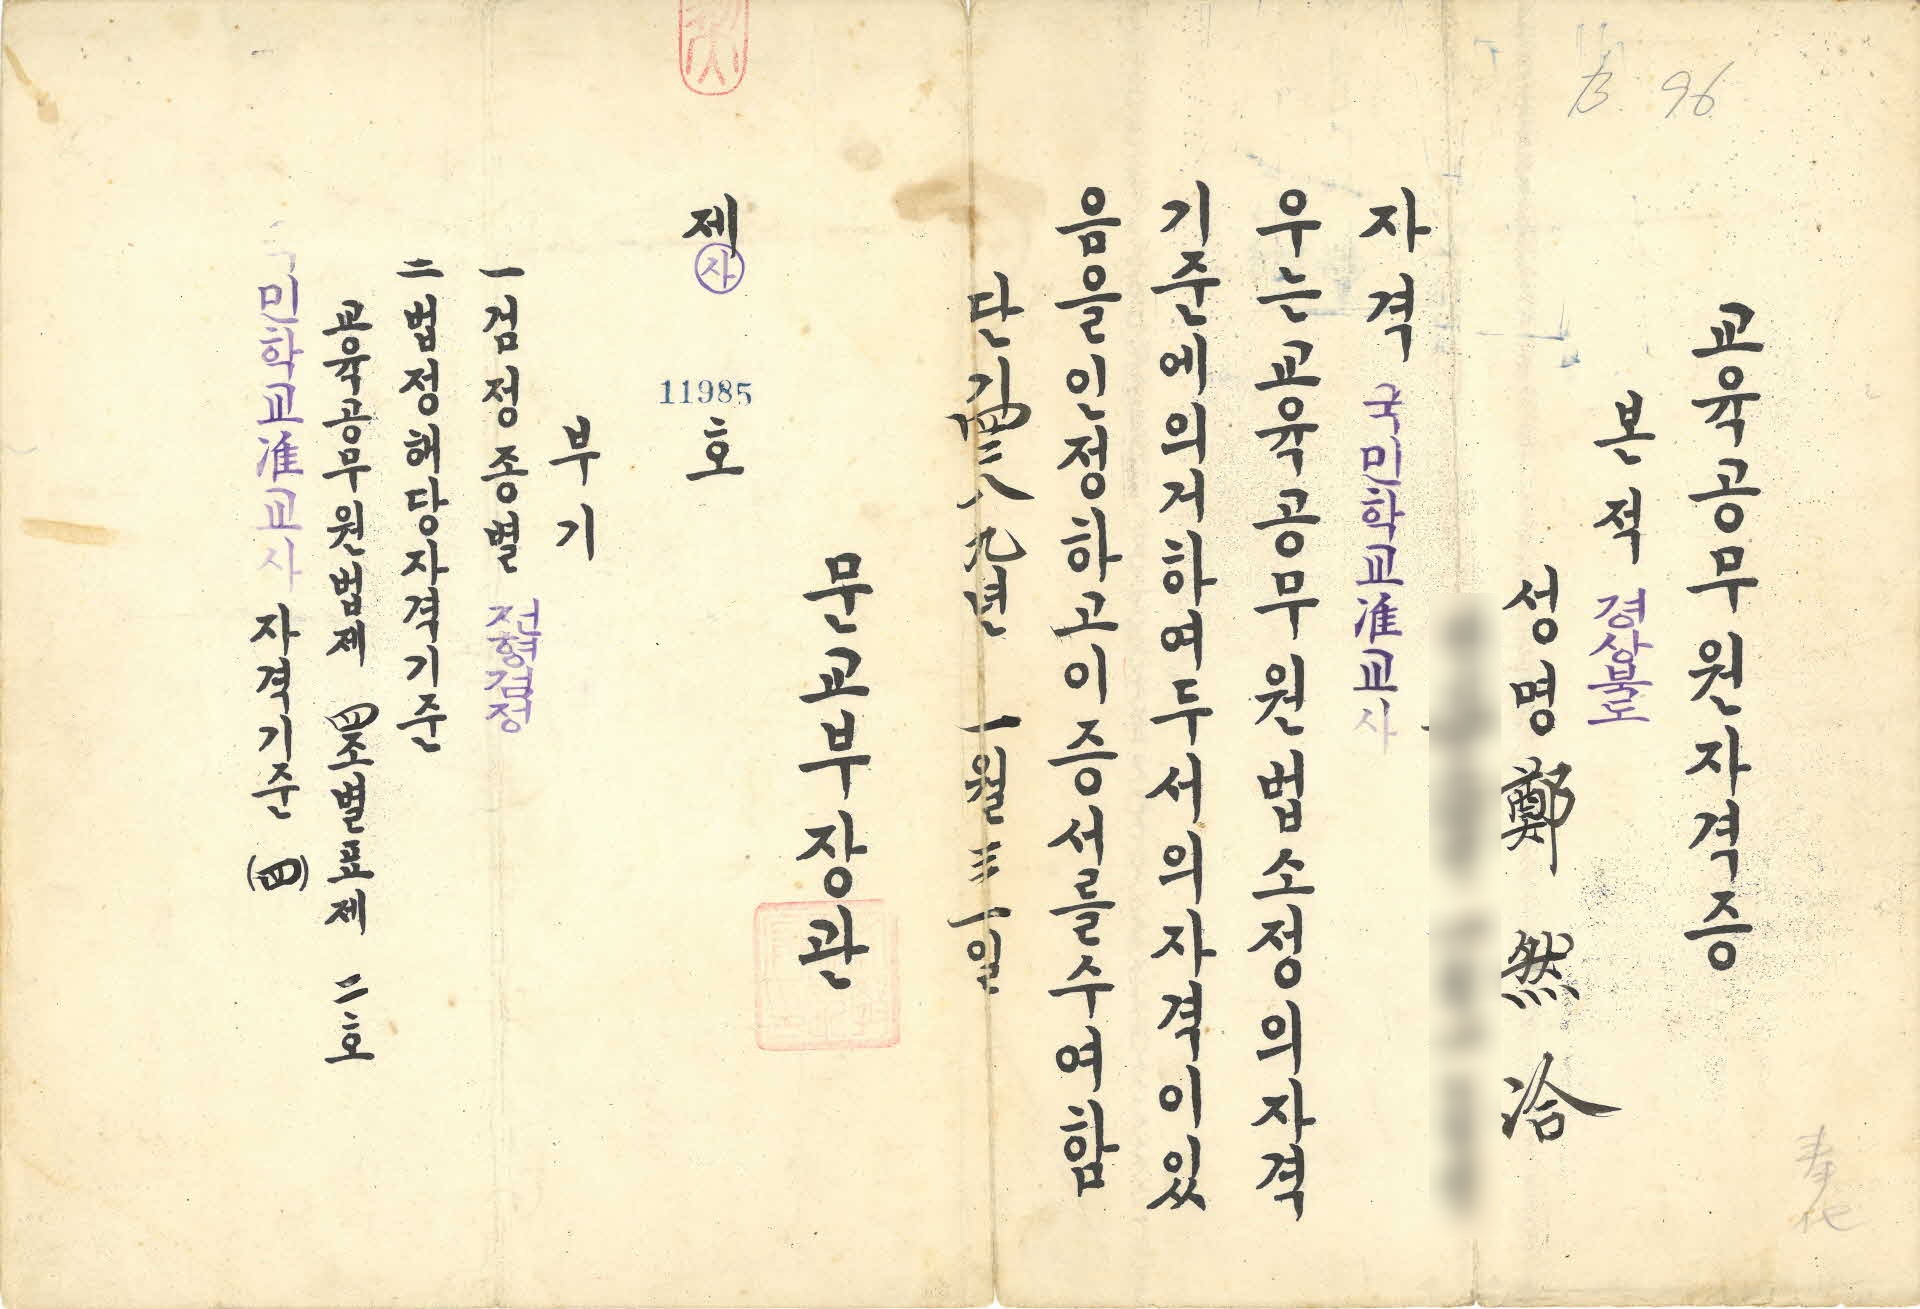 B. 96
교육공무원자격증
본적 경상북도
성명 鄭然洽
자격 국민학교准교사
우는교육공무원법소정의자격
기준에의거하여두서의자격이있
음을인정하고이증서를수여함
단기四二八九년 一월三一일
문교부장관
제㉴ 11985호
부기
一 검정종별 전형검정
二 법정해당자격기준
교육공무원법제四조별표제 二호
국민학교准교사 자격기준 (四)